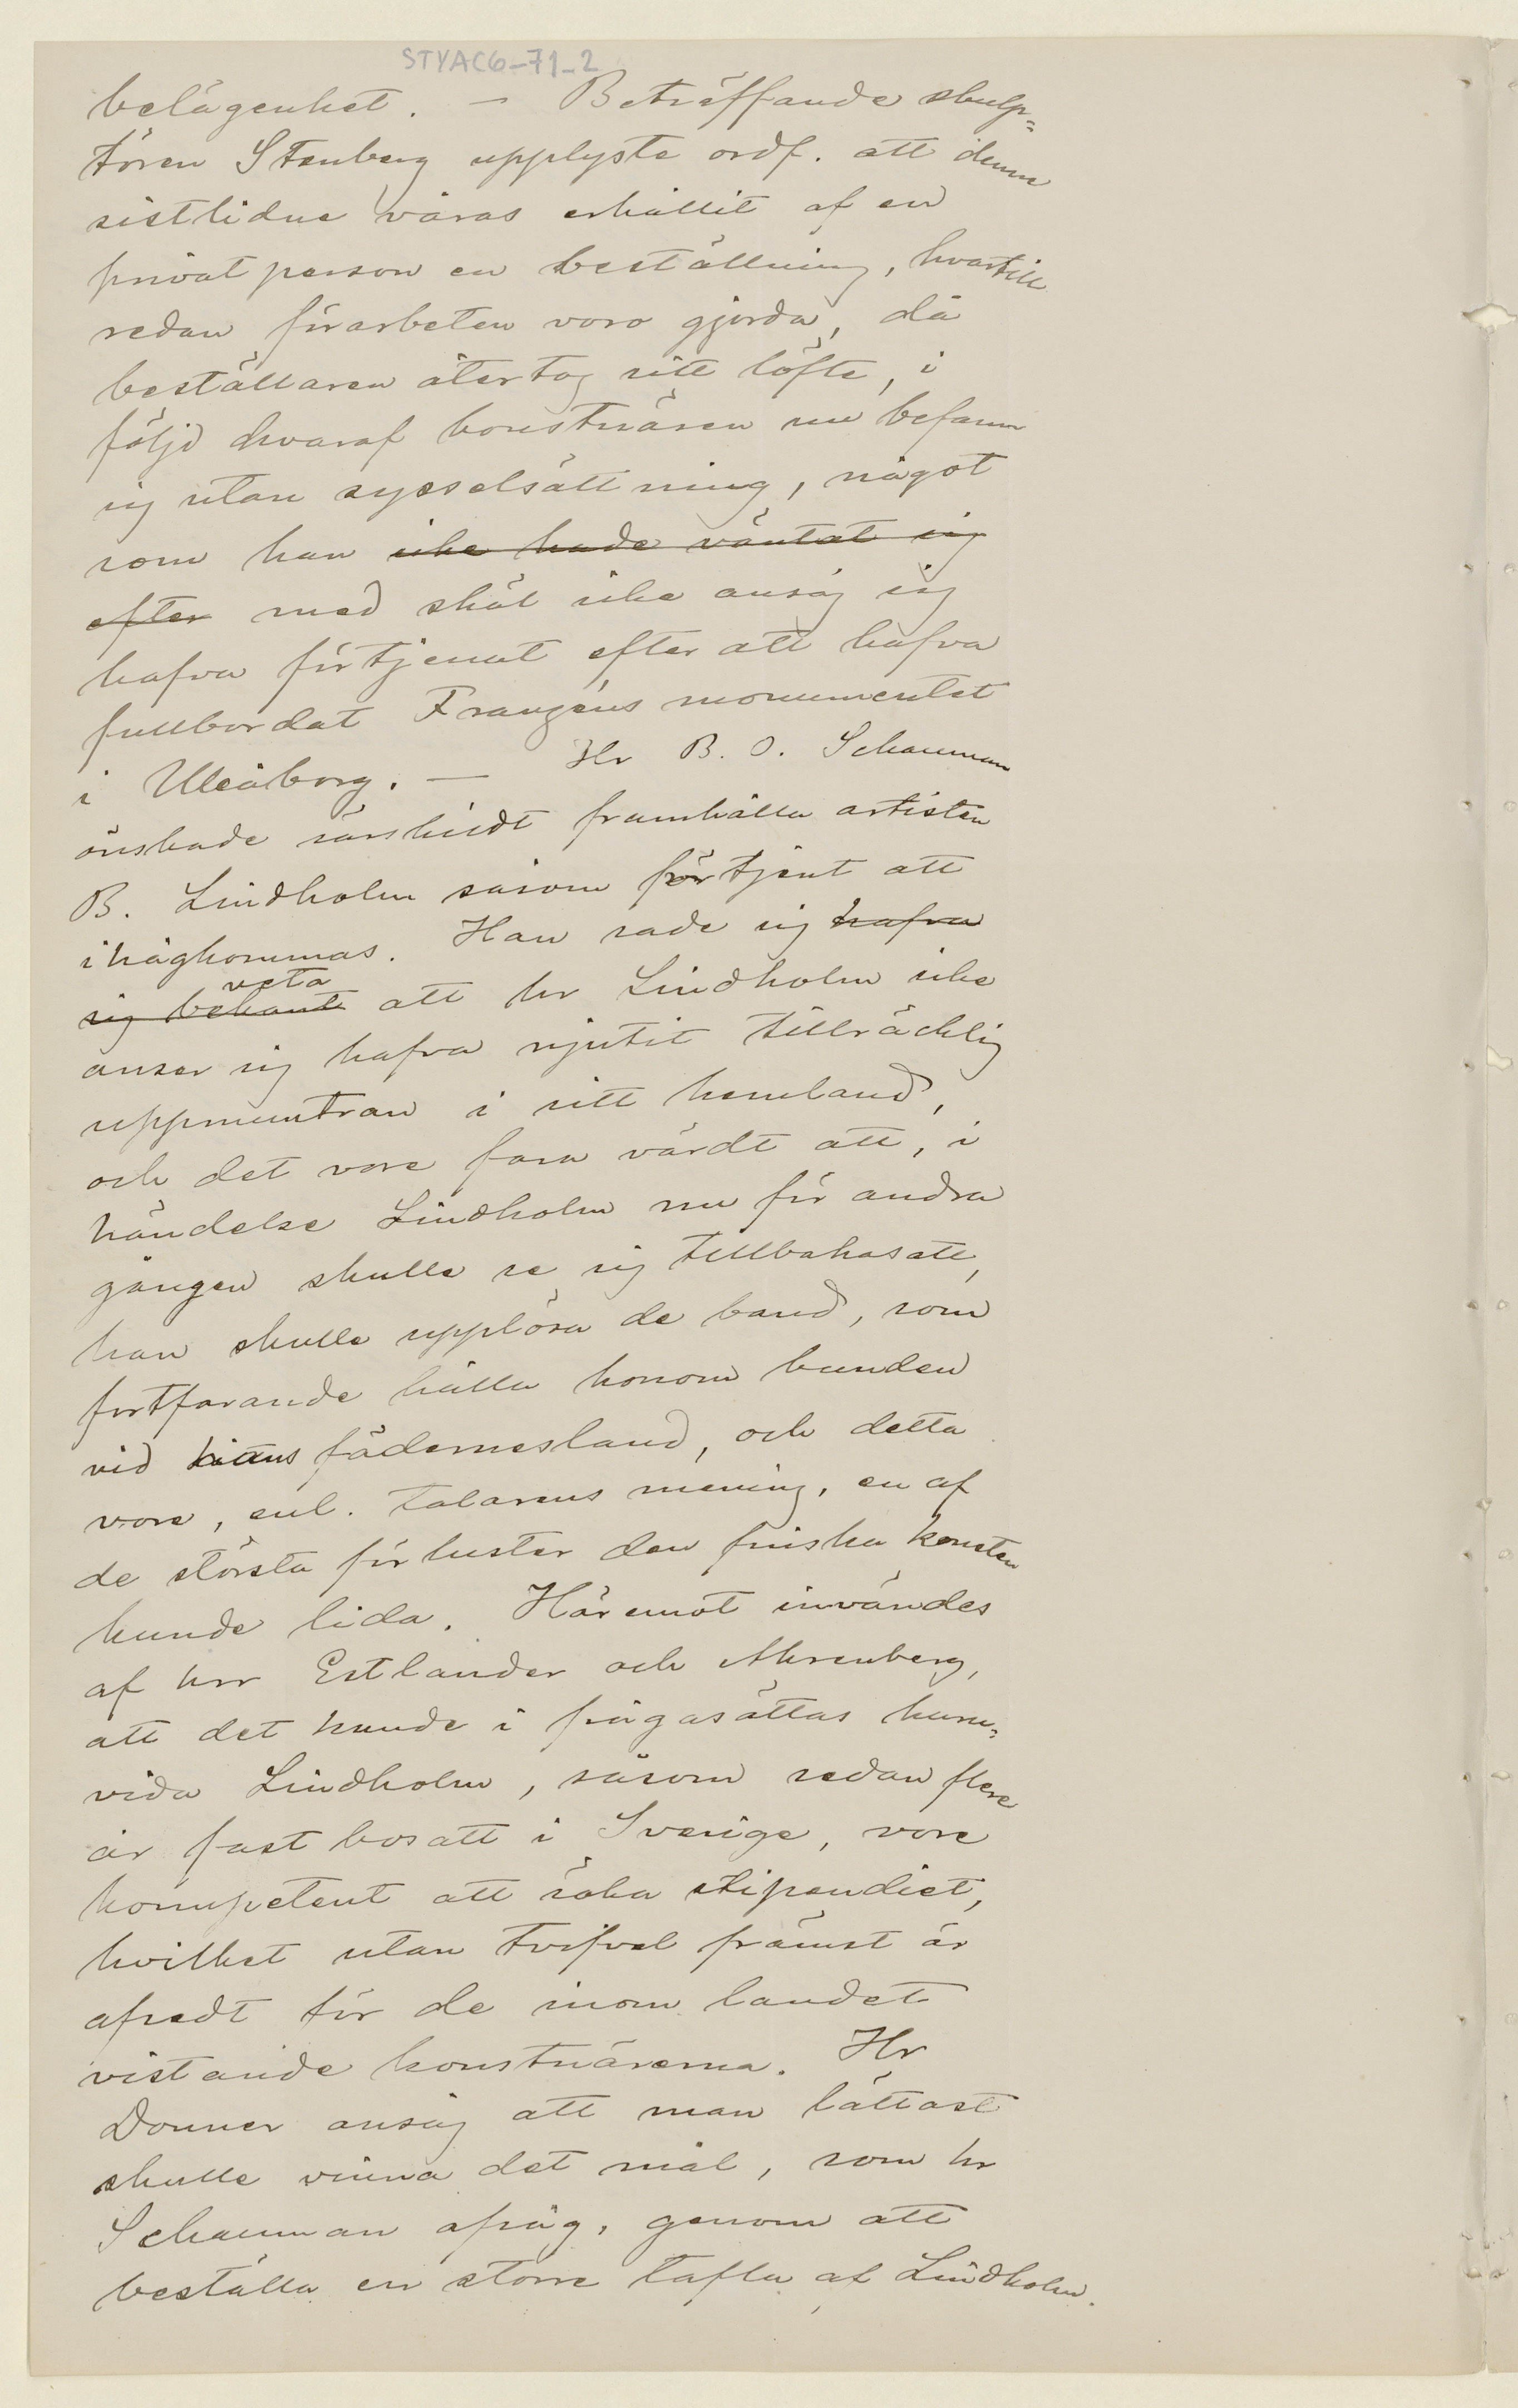 STYAC6-71-2
belägenhet. — Beträffande skulp=
tören Stenberg upplyste ordf. att denne
sistlidne våras erhållit af en
privat person en beställning, hvartill
redan förarbeten voro gjorda, då
beställaren återtog sitt löfte, i
följd hvaraf konstnären nu befann
sig utan sysselsättning, något
som han icke hade väntat sig
efter med skäl icke ansåg sig
hafva förtjenat efter att hafva
fullbordat Franzéns monumentet
i Uleåborg. — Hr B. O. Schauman
önskade särskildt framhålla artisten
B. Lindholm såsom förtjent att
ihågkommas. Han sade sig hafva
veta
sig bekant att hr Lindholm icke
anser sig hafva njutit tillräcklig
uppmuntran i sitt hemland,
och det vore fara värdt att, i
händelse Lindholm nu för andra
gången skulle se sig tillbakasatt,
han skulle upplösa de band, som
fortfarande hålla honom bunden
vid hans fädernesland, och detta
vore, enl. talarens mening, en af
de största förluster den finska konsten
kunde lida. Häremot invändes
af hrr Estlander och Ahrenberg,
att det kunde i frågasättas huru=
vida Lindholm, såsom redan flere
år fast bosatt i Sverige, vore
kompetent att söka stipendiet,
hvilket utan tvifvel främst är
afsedt för de inom landet
vistande konstnärerna. Hr
Donner ansåg att man lättast
skulle vinna det mål, som hr
Schauman afsåg, genom att
beställa en större tafla af Lindholm.